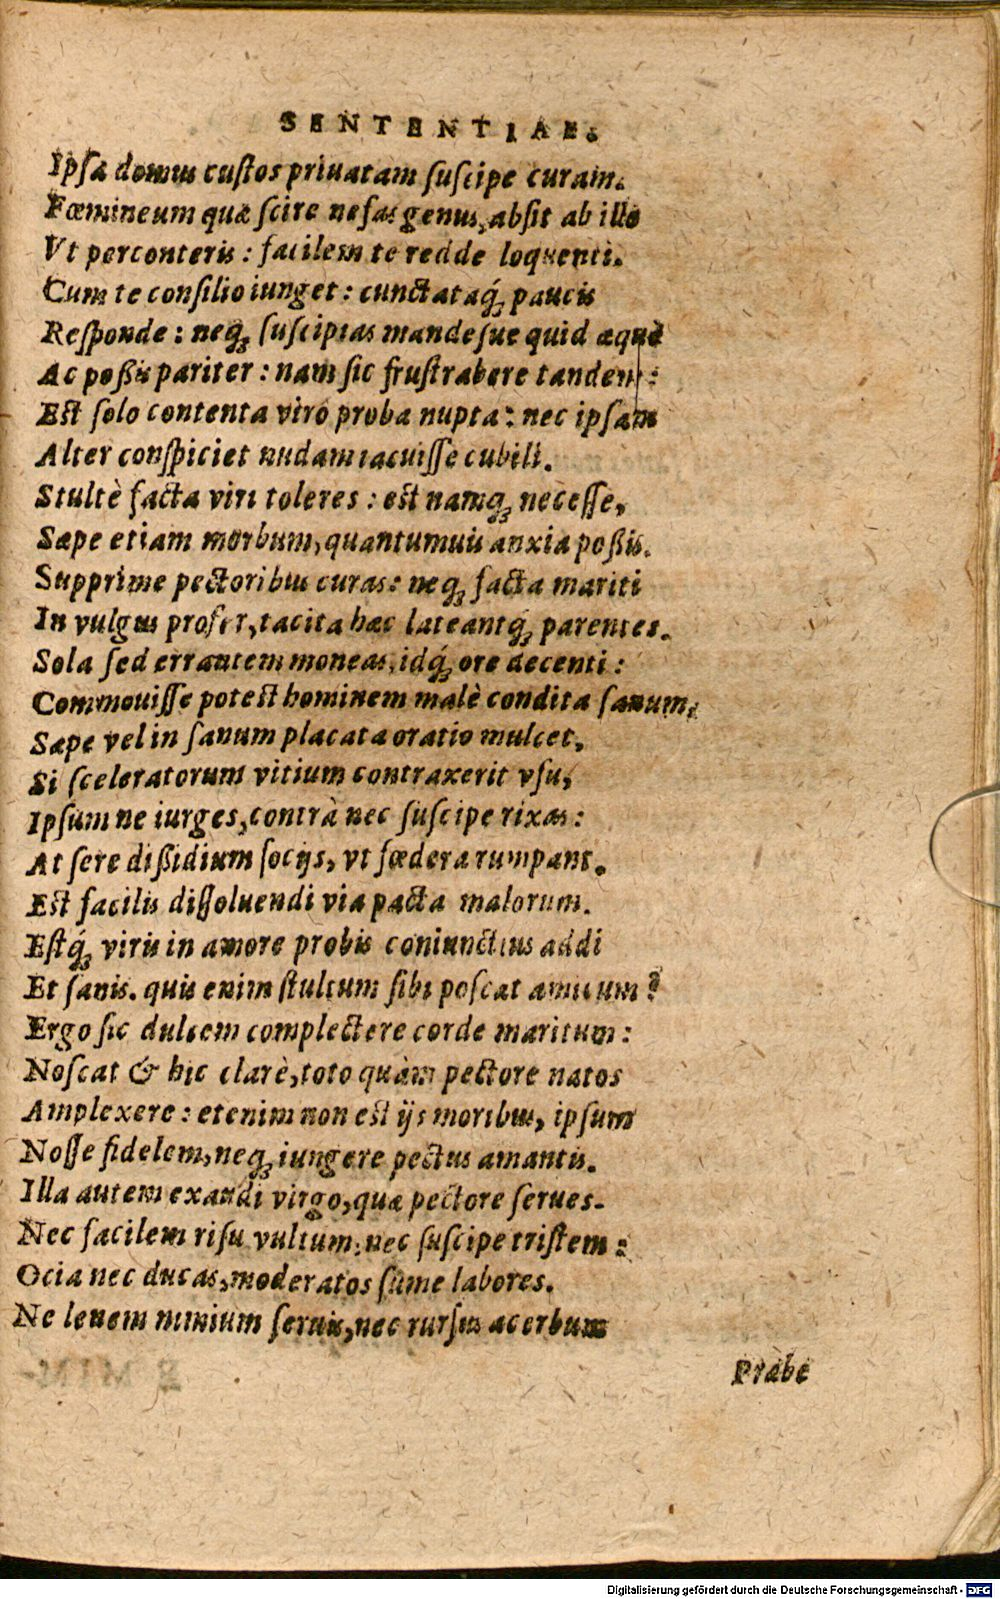 SENTENTIAE.
Ipsa domus custos priuatam suscipe curam.
Fœmineum quæ scire nefas genus, absit ab illo
Vt perconteris: facilem te redde loquenti.
Cum te consilio iunget: cunctataq́ꝫ paucis
Responde: neqꝫ susciptas mandesue quid æquè
Ac poßis pariter: nam sic frustrabere tandem:
Est solo contenta viro proba nupta: nec ipsam
Alter conspiciet nudam iacuisse cubili.
Stultè facta viri toleres: est namqꝫ necesse,
Sæpe etiam morbum, quantumuis anxia poßis.
Supprime pectoribus curas: neqꝫ facta mariti
In vulgus profer, tacita hæc lateantq́ꝫ parentes.
Sola sed errantem moneas, idq́ꝫ ore decenti:
Commouisse potest hominem malè condita sanum,
Sæpe vel in sanum placata oratio mulcet,
Si sceleratorum vitium contraxerit vsu,
Ipsum ne iurges, contrà nec suscipe rixas:
At fere dißidium socijs, vt fœdera rumpant.
Est facilis dissoluendi via pacta malorum.
Estq́ꝫ viris in amore probis coniunctius addi
Et sanis. quis enim stultum sibi poscat amicum?
Ergo sic dulcem complectere corde maritum:
Noscat & hic clarè, toto quàm pectore natos
Amplexere: etenim non est ijs moribus, ipsum
Nosse fidelem, neqꝫ iungere pectus amantis.
Illa autem exaudi virgo, quæ pectore serues.
Nec facilem risu vultum, nec suscipe tristem:
Ocia nec ducas, moderatos sume labores.
Ne leuem nimium seruis, nec rursus acerbum
Præbe
Digitalisierung gefördert durch die Deutsche Forschungsgemeinschaft - DFG